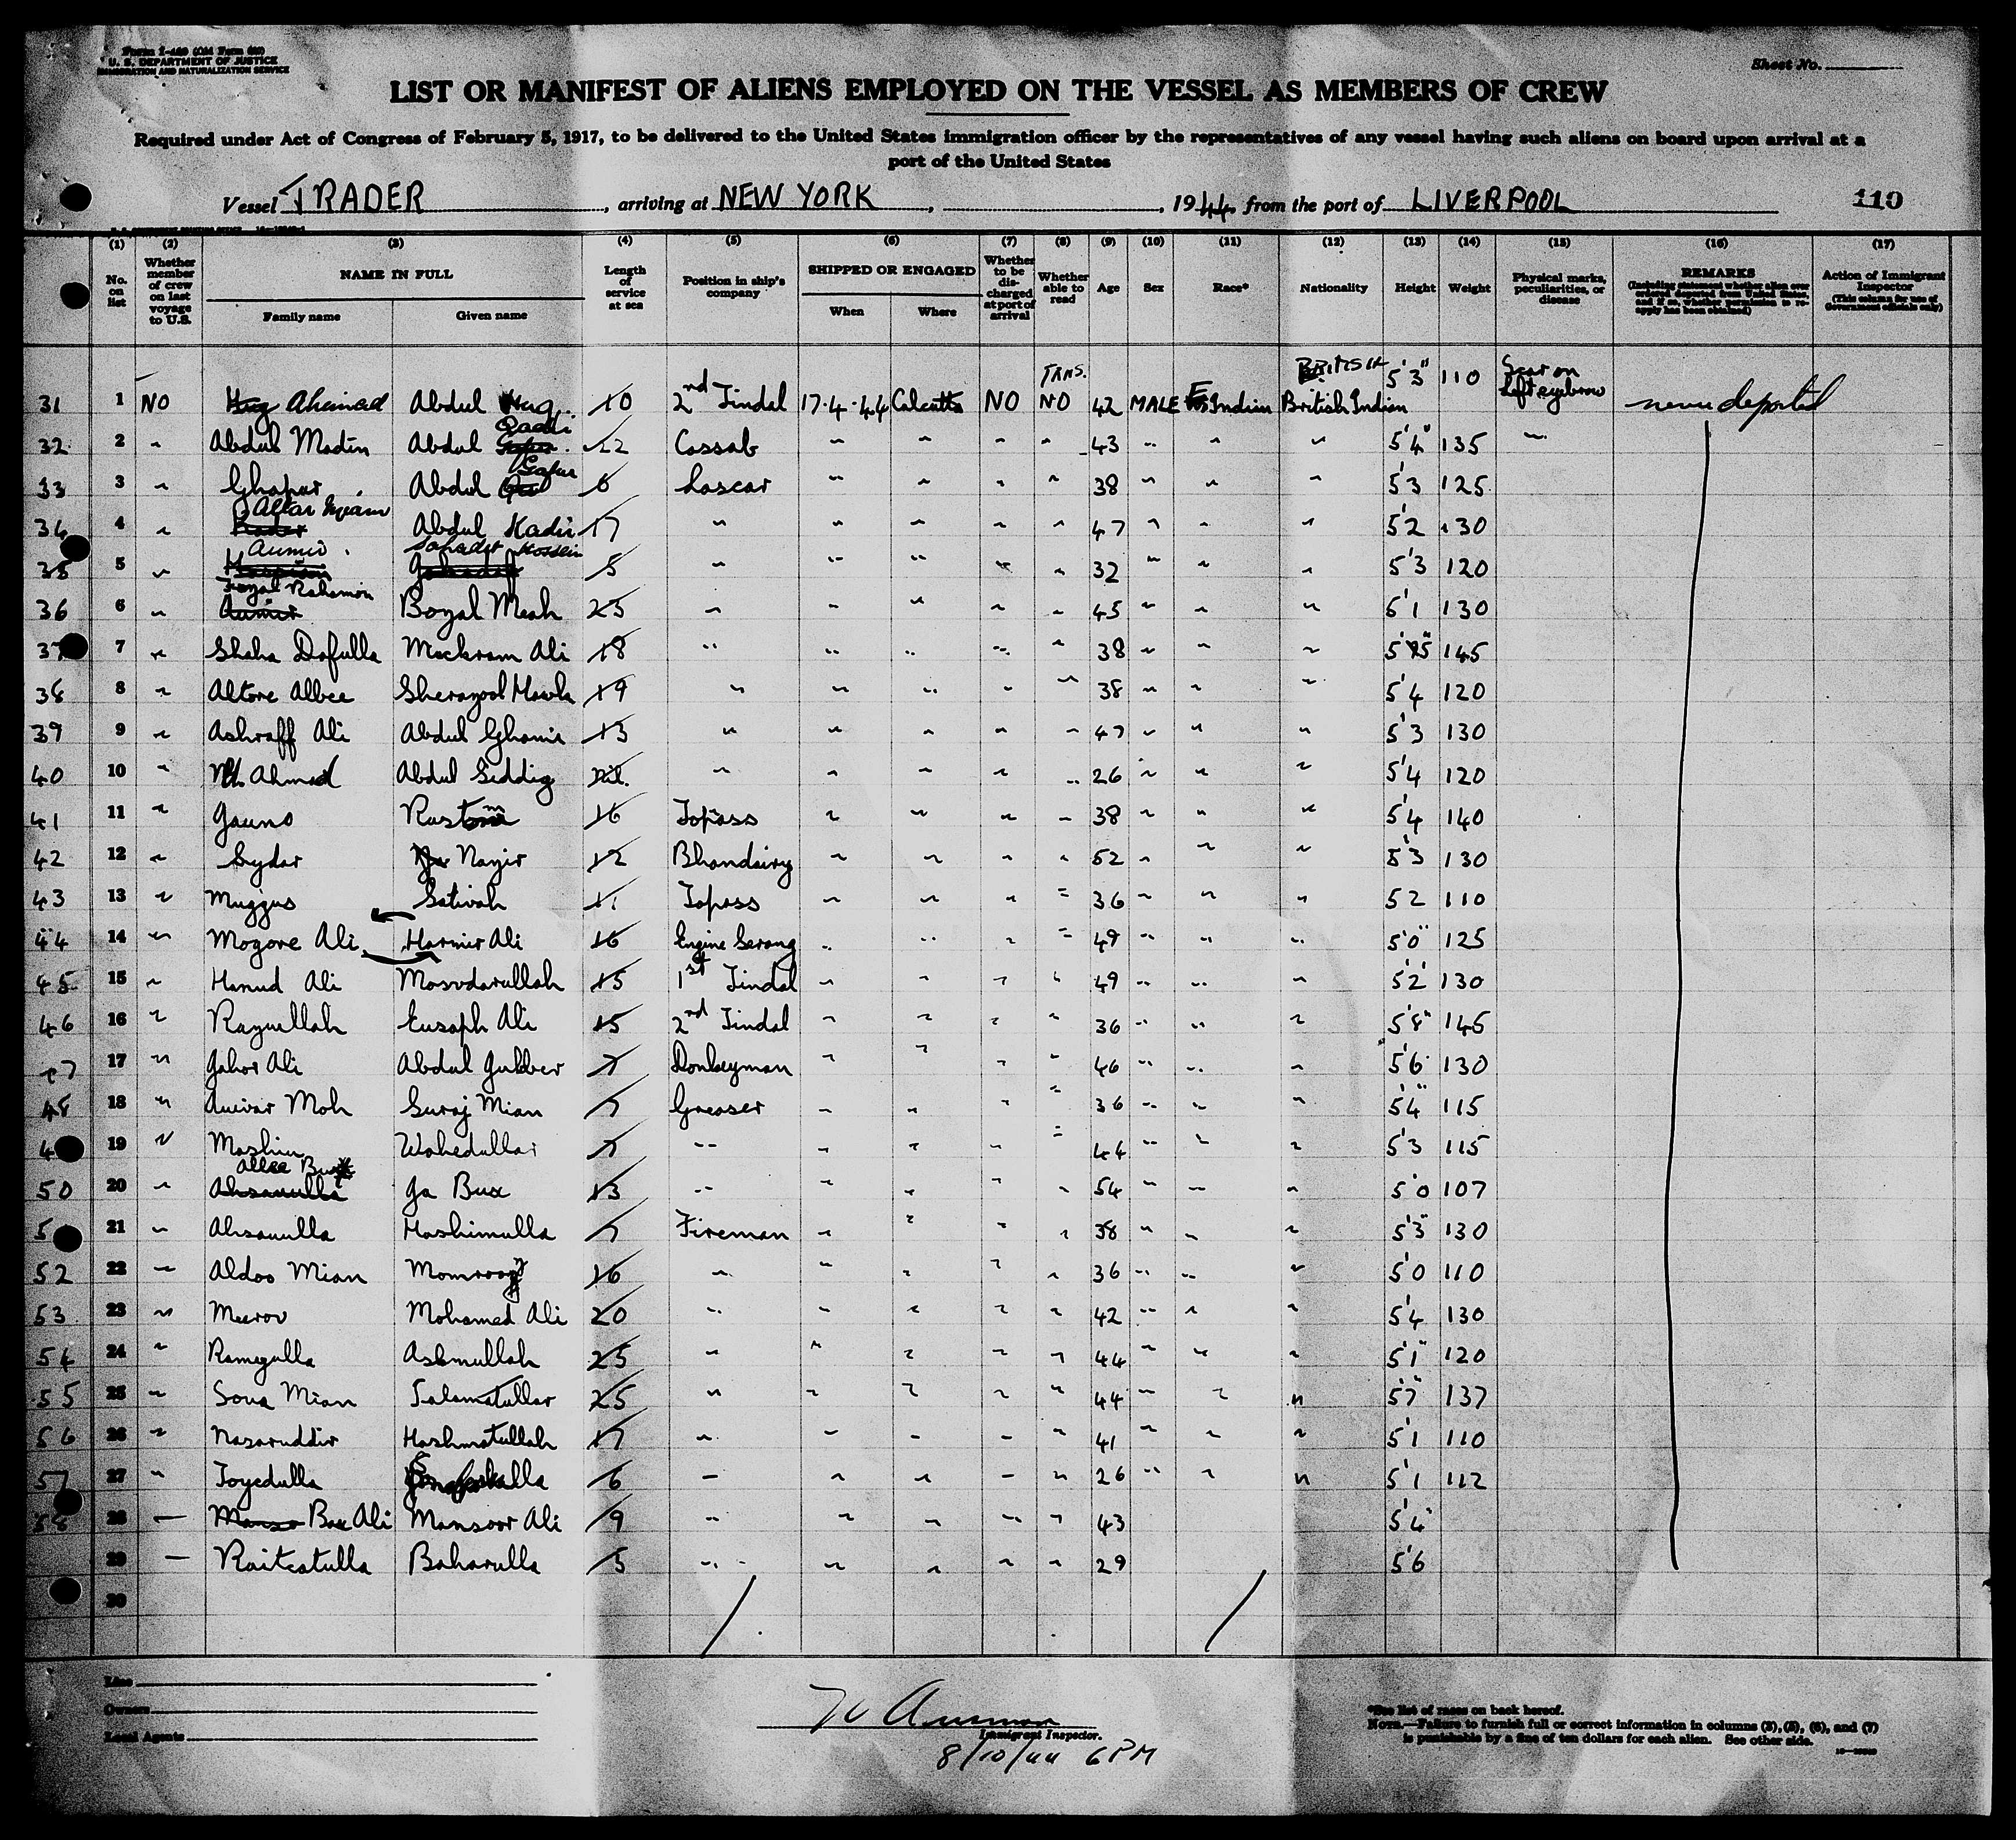 Form I-489 (Old Form 680)
U. S. DEPARTMENT OF JUSTICE
IMMIGRATION AND NATURALIZATION SERVICE
Sheet No.
LIST OR MANIFEST OF ALIENS EMPLOYED ON THE VESSEL AS MEMBERS OF CREW
Required under Act of Congress of February 5, 1917, to be delivered to the United States immigration officer by the representatives of any vessel having such aliens on board upon arrival at a
port of the United States
Vessel TRADER, arriving at NEW YORK, , 1944 from the port of LIVERPOOL 110
(1) (2) (3) (4) (5) (6) (7) (8) (9) (10) (11) (12) (13) (14) (15) (16) (17)
No. on list Whether member of crew on last voyage to U.S. NAME IN FULL Family name Given name Length of service at sea Position in ship's company SHIPPED OR ENGAGED When Where Whether to be discharged at port of arrival Whether able to read Age Sex Race* Nationality Height Weight Physical marks, peculiarities, or disease REMARKS (Including statement whether alien ever ordered deported from United States, and if so, whether permission to reapply has been obtained) Action of Immigrant Inspector (This column for use of Government officials only)
31 1 NO Ahamad Abdul Huq 10 2nd Tindal 17.4.44 Calcutta NO TRNS. NO 42 MALE E Indian BRITISH British Indian 5'3" 110 Scar on left eyebrow never deported
32 2 " Abdul Madin Abdul Qadir 22 Cassab " " " " 43 " " " 5'4" 135 "
33 3 " Ghafur Abdul Gafur 6 Lascar " " " " 38 " " " 5'3 125
34 4 " Altar Meam Abdul Kadir 17 " " " " " 47 " " " 5'2 130
35 5 " Aumir Hossein 5 " " " " " 32 " " " 5'3 120
36 6 " Rahaman Boyal Meah 23 " " " " " 45 " " " 5'1 130
37 7 " Shaha Dafulla Mockram Ali 18 " " " " " 38 " " " 5'5" 145
38 8 " Altore Albee Sherazool 19 " " " " " 38 " " " 5'4 120
39 9 " Ashraff Ali Abdul Ghanis 13 " " " " " 47 " " " 5'3 130
40 10 " Ahmad Abdul Siddig nil. " " " " " 26 " " " 5'4 120
41 11 " Gauno Rustom 16 Topass " " " " 38 " " " 5'4 140
42 12 " Sydar Nazir 12 Bhandairy " " " " 52 " " " 5'3 130
43 13 " Muggus Sativah 11 Topass " " " " 36 " " " 52 110
44 14 " Mogore Ali Harmir Ali 16 Engine Serang " " " " 49 " " " 5'0" 125
45 15 " Hamud Ali Mosvdarullah 15 1st Tindal " " " " 49 " " " 5'2' 130
46 16 " Razuellah Eusoph Ali 15 2nd Tindal " " " " 36 " " " 5'8" 145
47 17 " Gahor Ali Abdul Gubber 7 Donkeyman " " " " 46 " " " 5'6 130
48 18 " Anivar Moh Suraj Mian 7 Greaser " " " " 36 " " " 5'4" 115
4 19 " Moslim Wahedullar 7 " " " " " 44 " " " 5'3 115
50 20 " Allee Bux Ahsanulla Ga Bux 13 " " " " " 54 " " " 5'0 107
5 21 " Ahsanulla Hashimulla 7 Fireman " " " " 38 " " " 5'3" 130
52 22 " Aldoo Mian 16 " " " " " 36 " " " 5'0 110
53 23 " Meerov Mohamed Ali 20 " " " " " 42 " " " 5'4 130
54 24 " Ramzulla Askmullah 25 " " " " " 44 " " " 5'1" 120
55 25 " Sona Mian Salamatullar 25 " " " " " 44 " " " 5'7" 137
56 26 " Nasaruddir Hashmatullah 17 " " " " " 41 " " " 5'1 110
57 27 " Toyedulla 6 " " " " " 26 " " " 5'1 112
58 28 — Manso Box Ali Mansoor Ali 9 " " " " " 43 5'4"
29 — Raitcatulla Baharulla 5 " " " " " 29 5'6
30
Line
Owners
Local Agents
Immigrant Inspector.
8/10/44 6 PM
*See list of races on back hereof.
NOTE.—Failure to furnish full or correct information in columns (3), (5), (6), and (7)
is punishable by a fine of ten dollars for each alien. See other side.